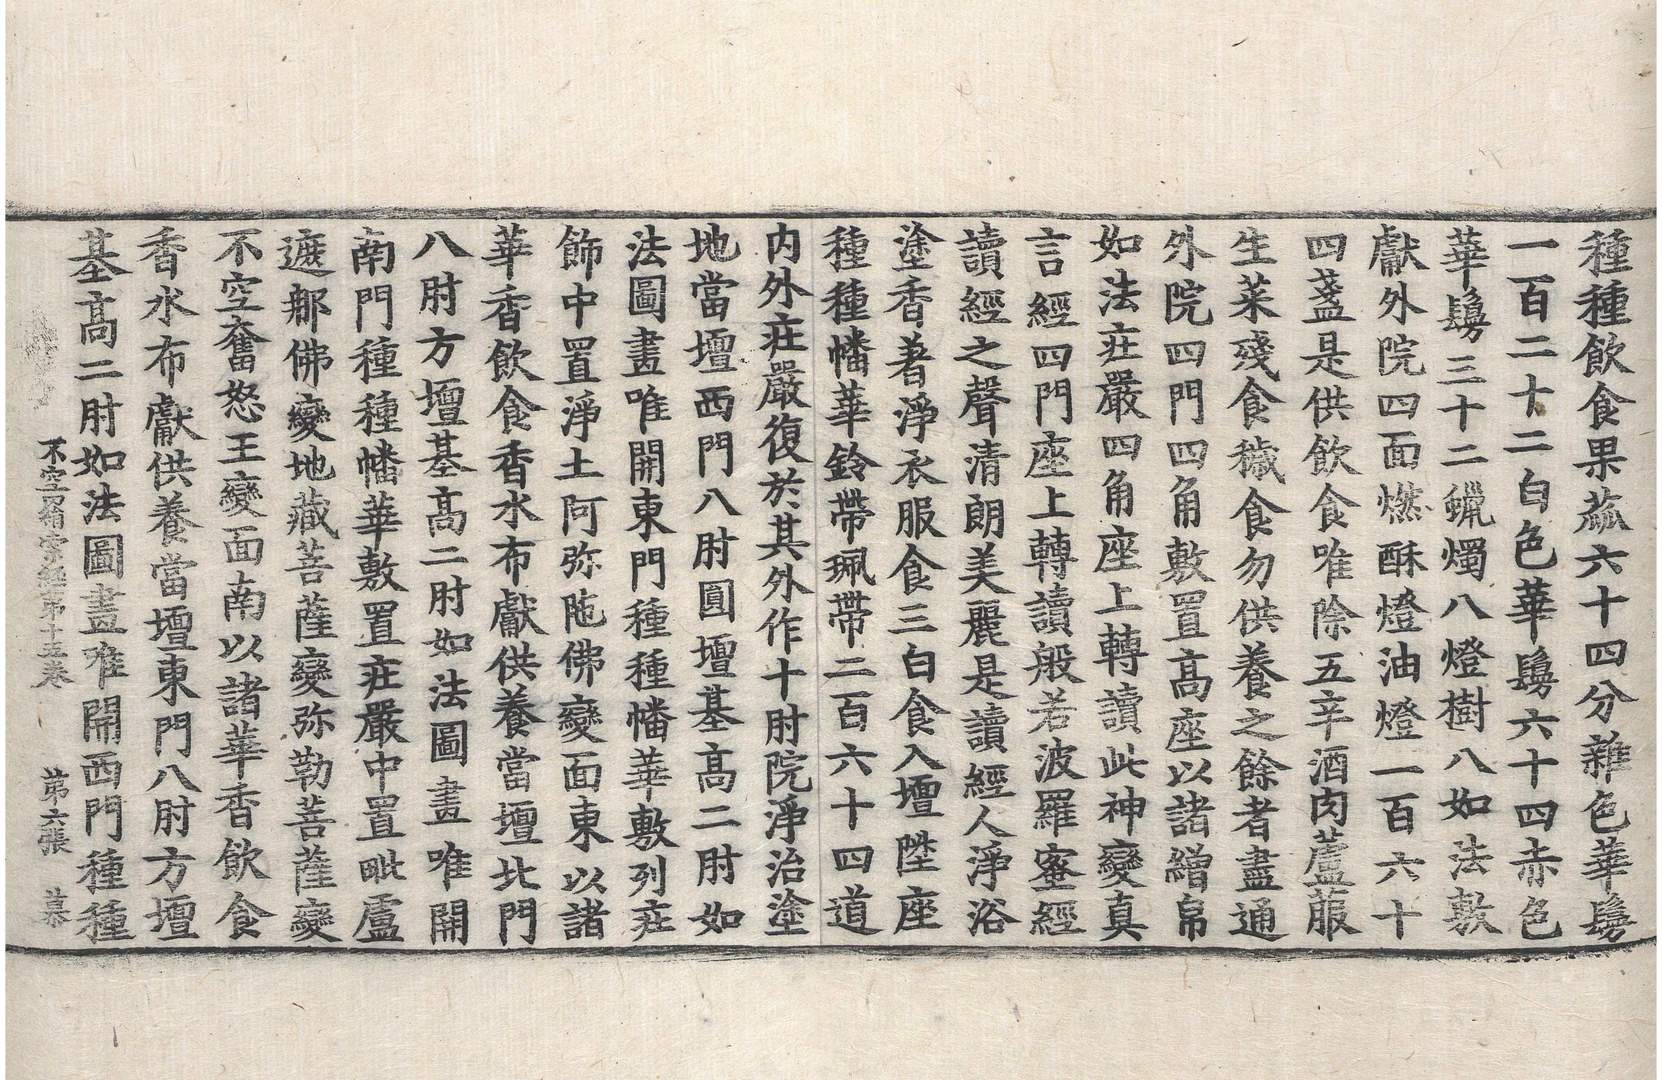 種種飲食果蓏六十四分雜色華鬘
一百二十二白色華鬘六十四赤色
華鬘三十二蠟燭八燈樹八如法敷
獻外院四面燃酥燈油燈一百六十
四盞是供飲食唯除五辛酒肉蘆菔
生菜殘食穢食勿供養之餘者盡通
外院四門四角敷置高座以諸繒帛
如法莊嚴四角座上轉讀此神變真
言經四門座上轉讀般若波羅蜜經
讀經之聲清朗美麗是讀經人淨浴
塗香著淨衣服食三白食入壇陞座
種種幡華鈴帶珮帶二百六十四道
內外莊嚴復於其外作十肘院淨治塗
地當壇西門八肘圓壇基高二肘如
法圖畫唯開東門種種幡華敷列莊
飾中置淨土阿弥陁佛變面東以諸
華香飲食香水布獻供養當壇北門
八肘方壇基高二肘如法圖畫唯開
南門種種幡華敷置莊嚴中置毗盧
遮那佛變地藏菩薩變弥勒菩薩變
不空奮怒王變面南以諸華香飲食
香水布獻供養當壇東門八肘方壇
基高二肘如法圖畫唯開西門種種
不空罥索經第十五卷 第六張 慕